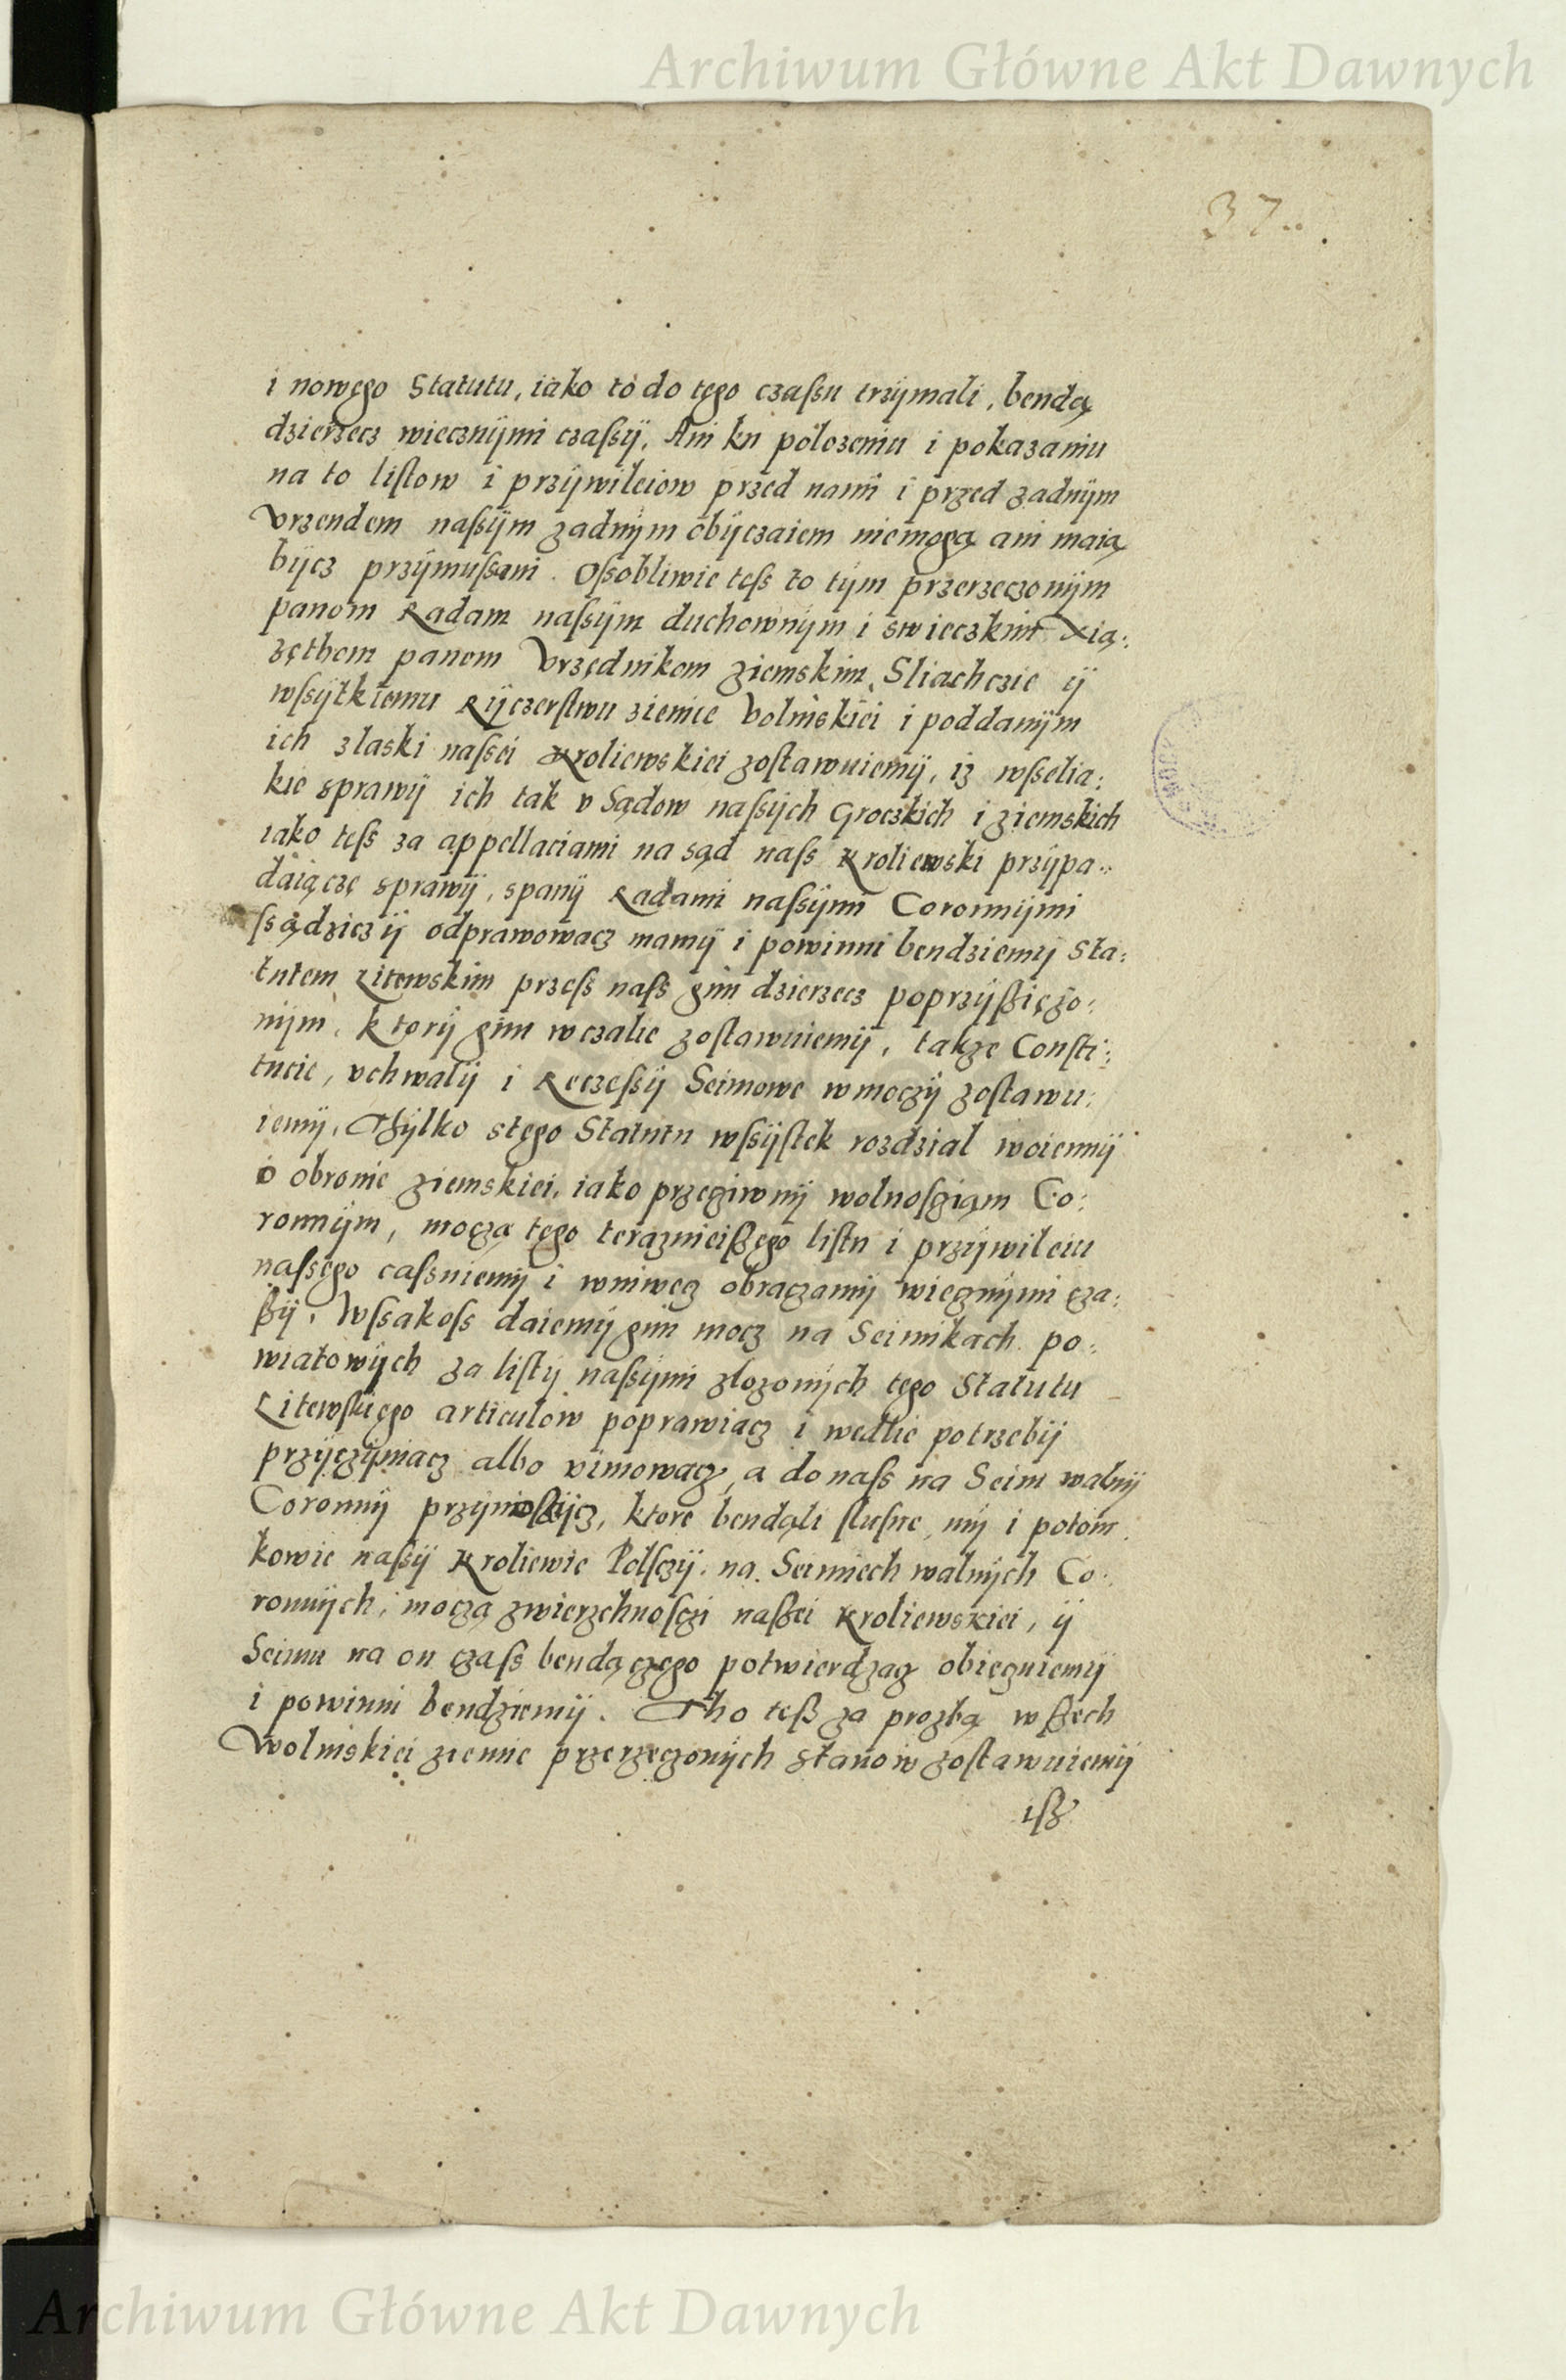 Archiwum Główne Akt Dawnych
37.
i nowęgo Statutu, iako to do tęgo czaſsu trzÿmali, bendą
dzierzecz wiecznÿmi czaſsÿ, Ani ku polozeniu i pokazaniu
na to liſtow i przÿwileiow przed nami i przed zadnÿm
Vrzendem naſsÿm zadnÿm obÿczaiem niemogą ani maią
bÿcz przÿmuſsani. Oſsobliwie teſs to tÿm przerzeczonÿm
panom Radam naſsÿm duchownÿm i swieczkim Xią:
zęthom panom Vrzędnikom ziemskim, Sliachczie ÿ
wſsÿtkiemu Rÿczerſtwu ziemie Volinskiei i poddanÿm
ich zlaski naſsei Kroliewskiei zoſtawuiemÿ, iz wſselia:
kie sprawÿ ich tak v Sądow naſsÿch Groczkich i ziemskich
iako teſs za appellaciami na sąd naſs Kroliewski przÿpa:
daiączę sprawÿ, spanÿ Radami naſsÿmi Coronnÿmi
ſsądziczÿ odprawowacz mamÿ i powinni bendziemÿ Sta:
tutem Litewskim przeſs naſs gim dzierzecz poprzÿſzięzo:
nÿm, ktorÿ gim wczalie zoſtawuiemÿ, takze Conſti:
tucie, vchwalÿ i Reczeſsÿ Seimowe wmoczÿ zoſtawu:
iemÿ, Thÿlko stęgo Statutu wſsÿſtek rozdzial woiennÿ
o obronie ziemskiei, iako przeziwnÿ wolnoſziąm Co:
ronnÿm, moczą tęgo teraznieiſzęgo liſtu i przÿwileiu
naſsęgo caſsuiemÿ i wniwecz obraczamÿ wiecznÿmi cza:
ſzÿ, Wſsakoſs daiemÿ gim mocz na Seimikach po:
wiatowÿch za liſtÿ naſsÿmi zlozonÿch tęgo Statutu
Litewſkięgo articulow poprawiacz i wedlie potrzebÿ
przÿczÿniacz albo vimowacz, a do naſs na Seim walnÿ
Coronnÿ przÿnioſzÿcz, ktore bendąli ſluſne, mÿ i potom
kowie naſsÿ Kroliewie Polſczÿ, na Seimiech walnÿch Co:
ronnÿch, moczą zwierzchnoſczi naſzei Kroliewskiei, ÿ
Seimu na on czaſs bendączęgo potwierdzacz obiecuiemÿ
i powinni bendziemÿ. Tho teſz za prozbą wſzech
Wolinskiei ziemie przerzeczonÿch stanow zoſtawuiemÿ
iſz
Archiwum Główne Akt Dawnych